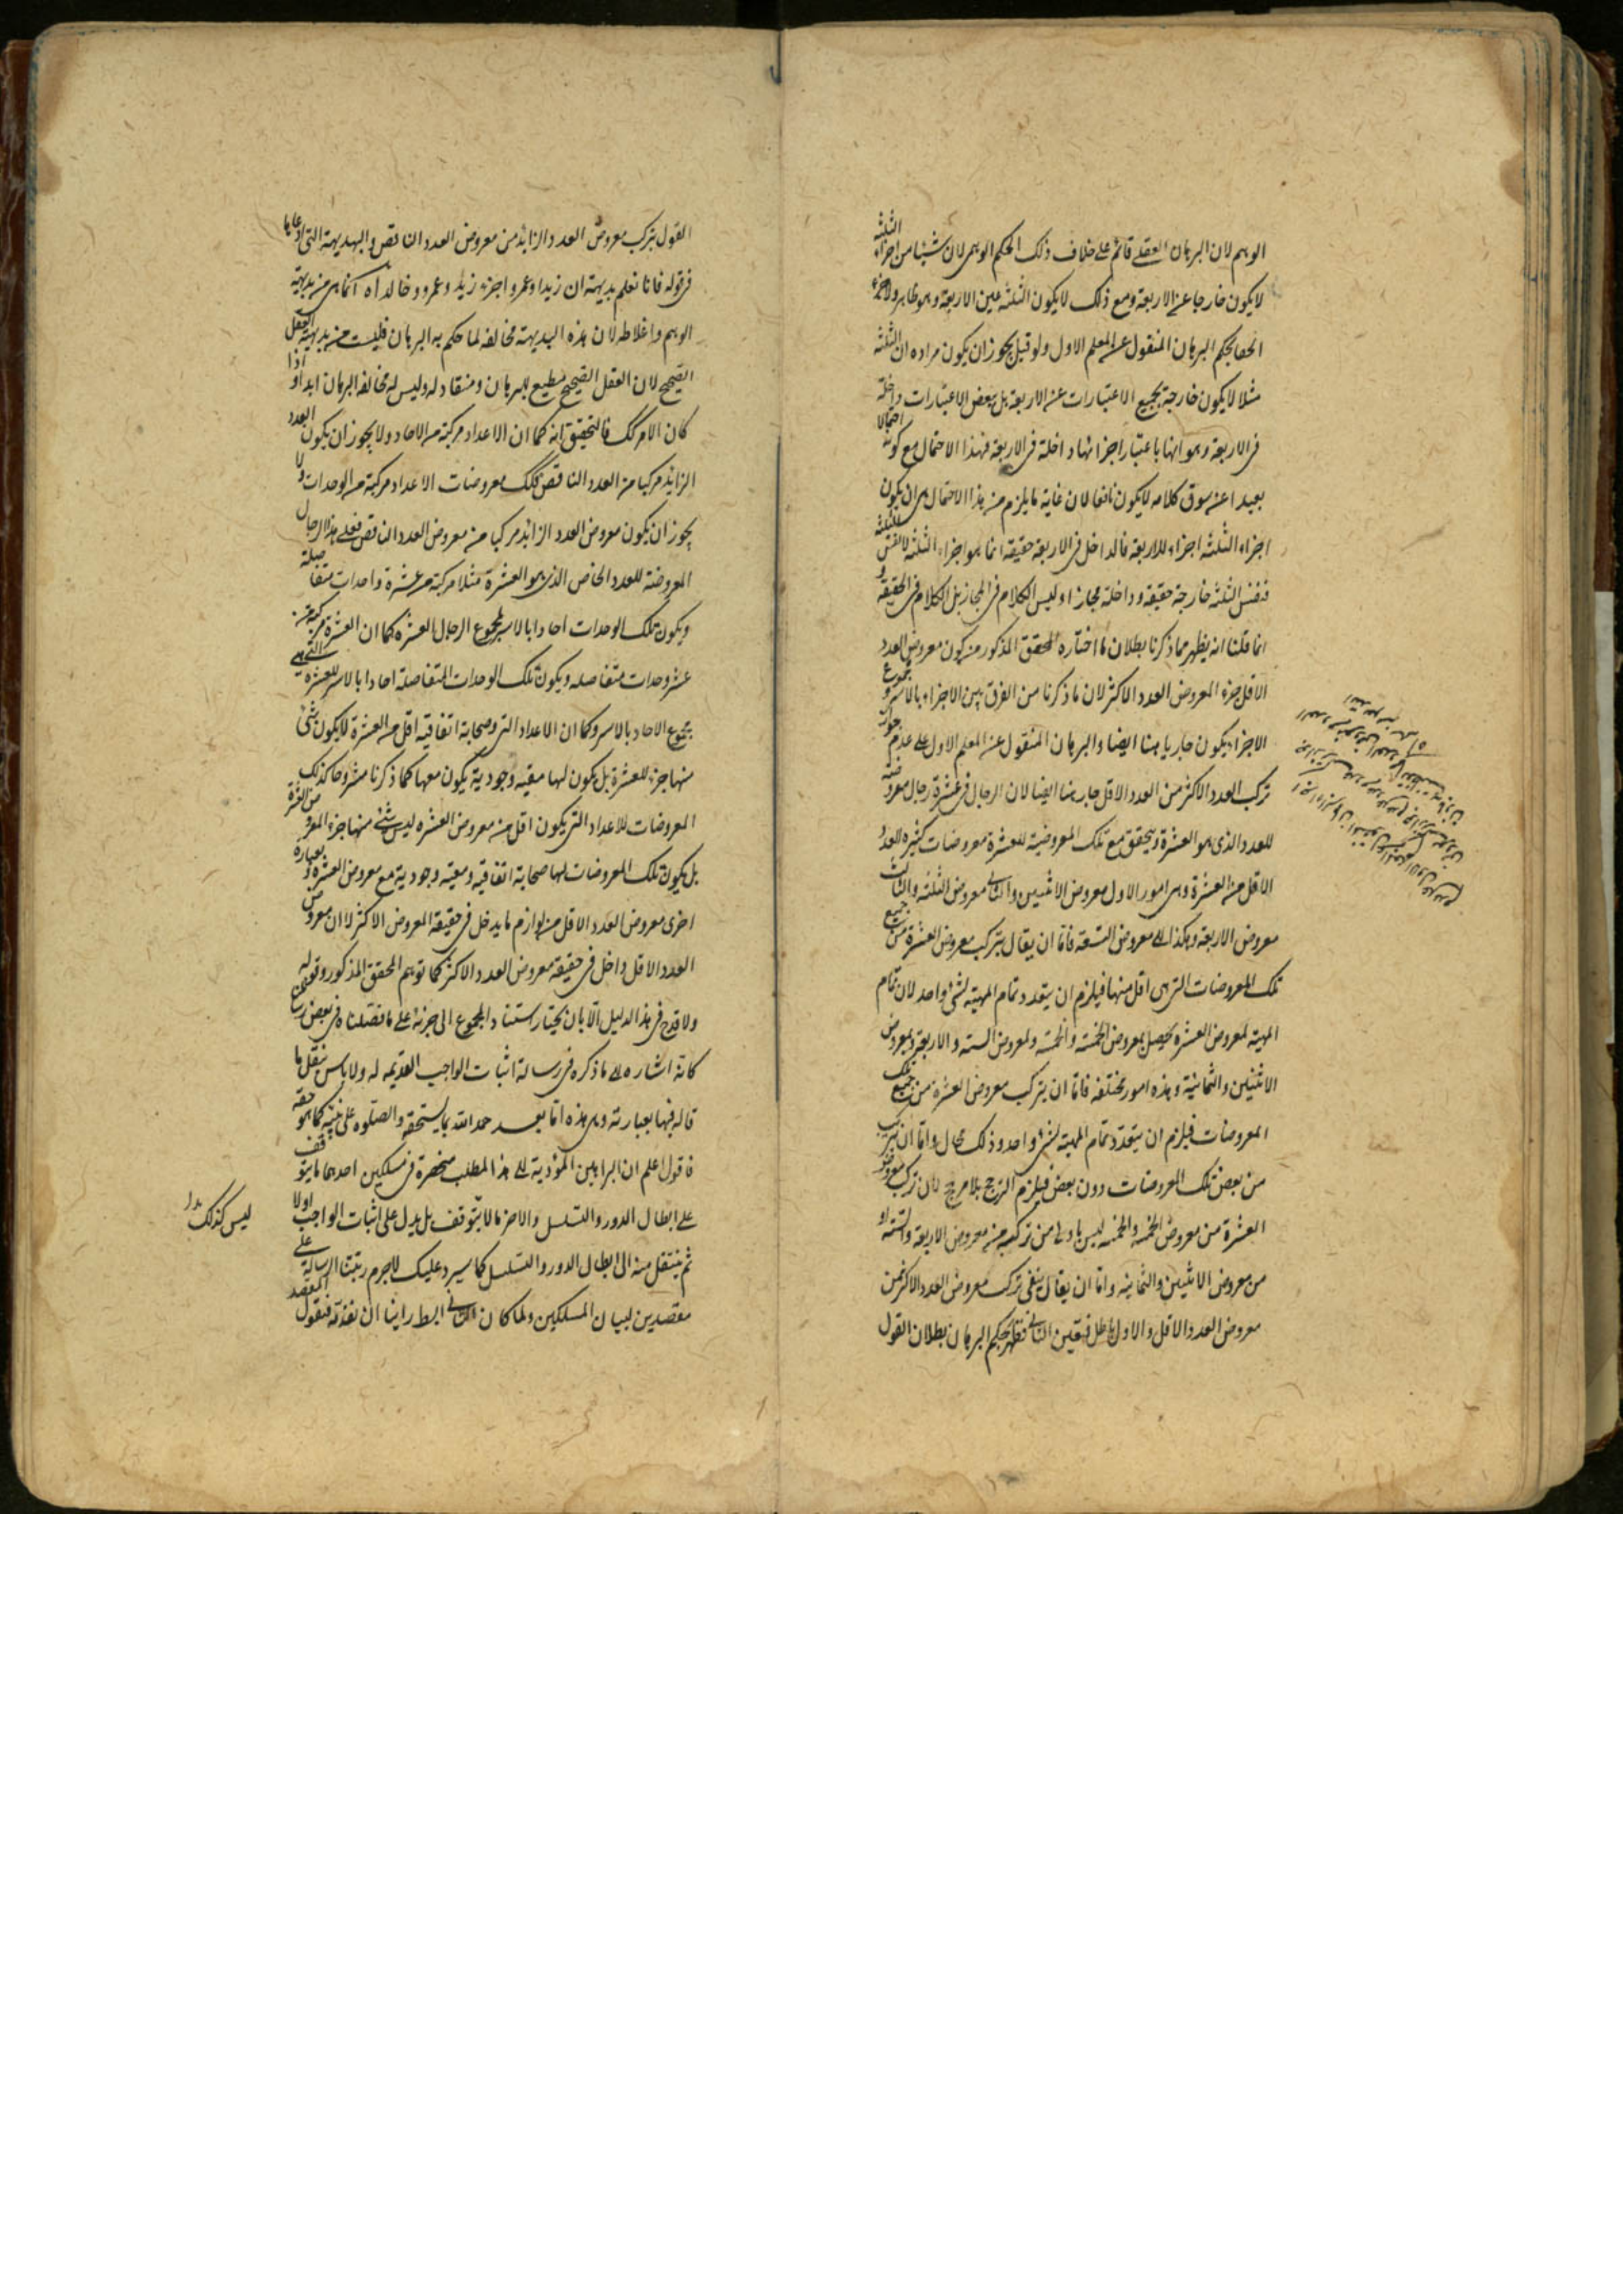 الوهم لان البرهان العقلے قائم علے خلاف ذلك الحكم الوهمى لان شيئا من اجزاء الثلثة
لا يكون خارجا عن الاربعة ومع ذلك لا يكون الثلثة عين الاربعة وهو ظاهر ولا جزء
لها بحكم البرهان المنقول عن المعلم الاول ولو قيل يجوز ان يكون مراده ان الثلثة
مثلا لا يكون خارجة بجميع الاعتبارات عن الاربعة بل ببعض الاعتبارات داخلة
فى الاربعة وهو انها باعتبار اجزائها داخلة فى الاربعة فهذا الاحتمال مع كونه احتمالا
بعيدا عن سوق كلامه لا يكون نافعا لان غاية ما يلزم من هذا الاحتمال هى ان يكون
اجزاء الثلثة اجزاء للاربعة فالداخل فى الاربعة حقيقة انما هو اجزاء الثلثة لا نفس الثلثة
فنفس الثلثة خارجة حقيقة وداخلة مجازا وليس الكلام فى المجاز بل الكلام فى الحقيقة و
انما قلنا انه يظهر مما ذكرنا بطلان ما اختاره المحقق المذكور من كون معروض العدد
الاقل جزء المعروض العدد الاكثر لان ما ذكرنا من الفرق بين الاجزاء بالاسر و مجموع
الاجزاء يكون جاريا هنا ايضا والبرهان المنقول عن المعلم الاول علے عدم جواز
تركب العدد الاكثر من العدد الاقل جار هنا ايضا لان الرجال فى عشرة رجال معروضة
للعدد الذى هو العشرة ويتحقق مع تلك المعروضية للعشرة معروضات كثيره للعدد
الاقل من العشرة وهى امور الاول معروض الاثنين والثانے معروض الثلثة والثالث
معروض الاربعة وهكذا الے معروض التسعة فاما ان يقال بتركب معروض العشرة من جميع
تلك المعروضات التى هى اقل منها فيلزم ان يتعدد تمام المهية لشئ واحد لان تمام
المهية لمعروض العشرة يحصل بمعروض الخمسة والخمسة ولمعروض الستة والاربعة وبمعروض
الاثنين والثمانية وهذه امور مختلفة فاما ان يتركب معروض العشرة من جميع تلك
المعروضات فيلزم ان يتعدد تمام المهية لشئ واحد وذلك محال واما ان يتركب
من بعض تلك المعروضات دون بعض فيلزم الترجيح بلا مرجح لان تركب معروض
العشرة من معروض الخمسة والخمسة ليس باولے من تركبه من معروض الاربعة والستة او
من معروض الاثنين والثمانية واما ان يقال بنفى تركب معروض العدد الاكثر من
معروض العدد الاقل والاول باطل فتعين الثانے فظهر بحكم البرهان بطلان القول
القول بتركب معروض العدد الزايد من معروض العدد الناقص والبديهة التى ادعاها
فى قوله فانا نعلم بديهة ان زيدا وعمروا جزء زيد وعمرو وخالد اه انما هى من بديهة
الوهم واغلاطه لان هذه البديهة مخالفة لما حكم به البرهان فليست من بديهة العقل
الصحيح لان العقل الصحيح مطيع للبرهان ومنقاد له وليس له مخالفة البرهان ابدا و اذا
كان الامر كك فالتحقيق انه كما ان الاعداد مركبة من الاحاد ولا يجوز ان يكون العدد
الزايد مركبا من العدد الناقص فكك معروضات الاعداد مركبة من الوحدات ولا
يجوز ان يكون معروض العدد الزايد مركبا من معروض العدد الناقص فعلے هذا الرجال
المعروضة للعدد الخاص الذى هو العشرة مثلا مركبة من عشرة واحدات متفاصلة
ويكون تلك الوحدات احادا بالاسر لمجموع الرجال العشرة كما ان العشرة مركبة من
عشر وحدات متفاصله ويكون تلك الوحدات المتفاصلة احادا بالاسر للعشرة التے هے
مجموع الاحاد بالاسر وكما ان الاعداد التى صحابة اتفاقية اقل من العشرة لا يكون شئ
منها جزء للعشرة بل يكون لها معية وجودية يكون معها كما ذكرنا مشروحا كذلك
المعروضات للاعداد التى يكون اقل من معروض العشرة ليس شئ منها جزء المعروض العشرة
بل يكون تلك المعروضات لها صحابة اتفاقية ومعية وجودية مع معروض العشرة و بعبارة
اخرى معروض العدد الاقل من لوازم ما يدخل فى حقيقة المعروض الاكثر لا ان معروض
العدد الاقل داخل فى حقيقة معروض العدد الاكثر كما توهم المحقق المذكور وقوله
ولا قدح فى هذا الدليل الا بان يختار استناد المجموع الى جزئه علے ما فصلناه فى بعض
كانه اشاره الے ما ذكره فى رسالة اثبات الواجب القديمة له ولا باس بنقل ما
قاله فيها بعبارته وهى هذه اما بعد حمد الله بما يستحقه والصلوه على نبيه كما هو حقه
فاقول اعلم ان البراهين المؤدية الے هذا المطلب منحصرة فى مسلكين احدهما ما يتوقف
على ابطال الدور والتسلسل والاخر ما لا يتوقف بل يدل على اثبات الواجب اولا
ثم ينتقل منه الى ابطال الدور والتسلسل كما سيرد عليك لاجرم رتبنا الرسالة علے
مقصدين لبيان المسلكين ولما كان الثانے ابسط راينا ان نقدمه فنقول المقصد
ليس كذلك